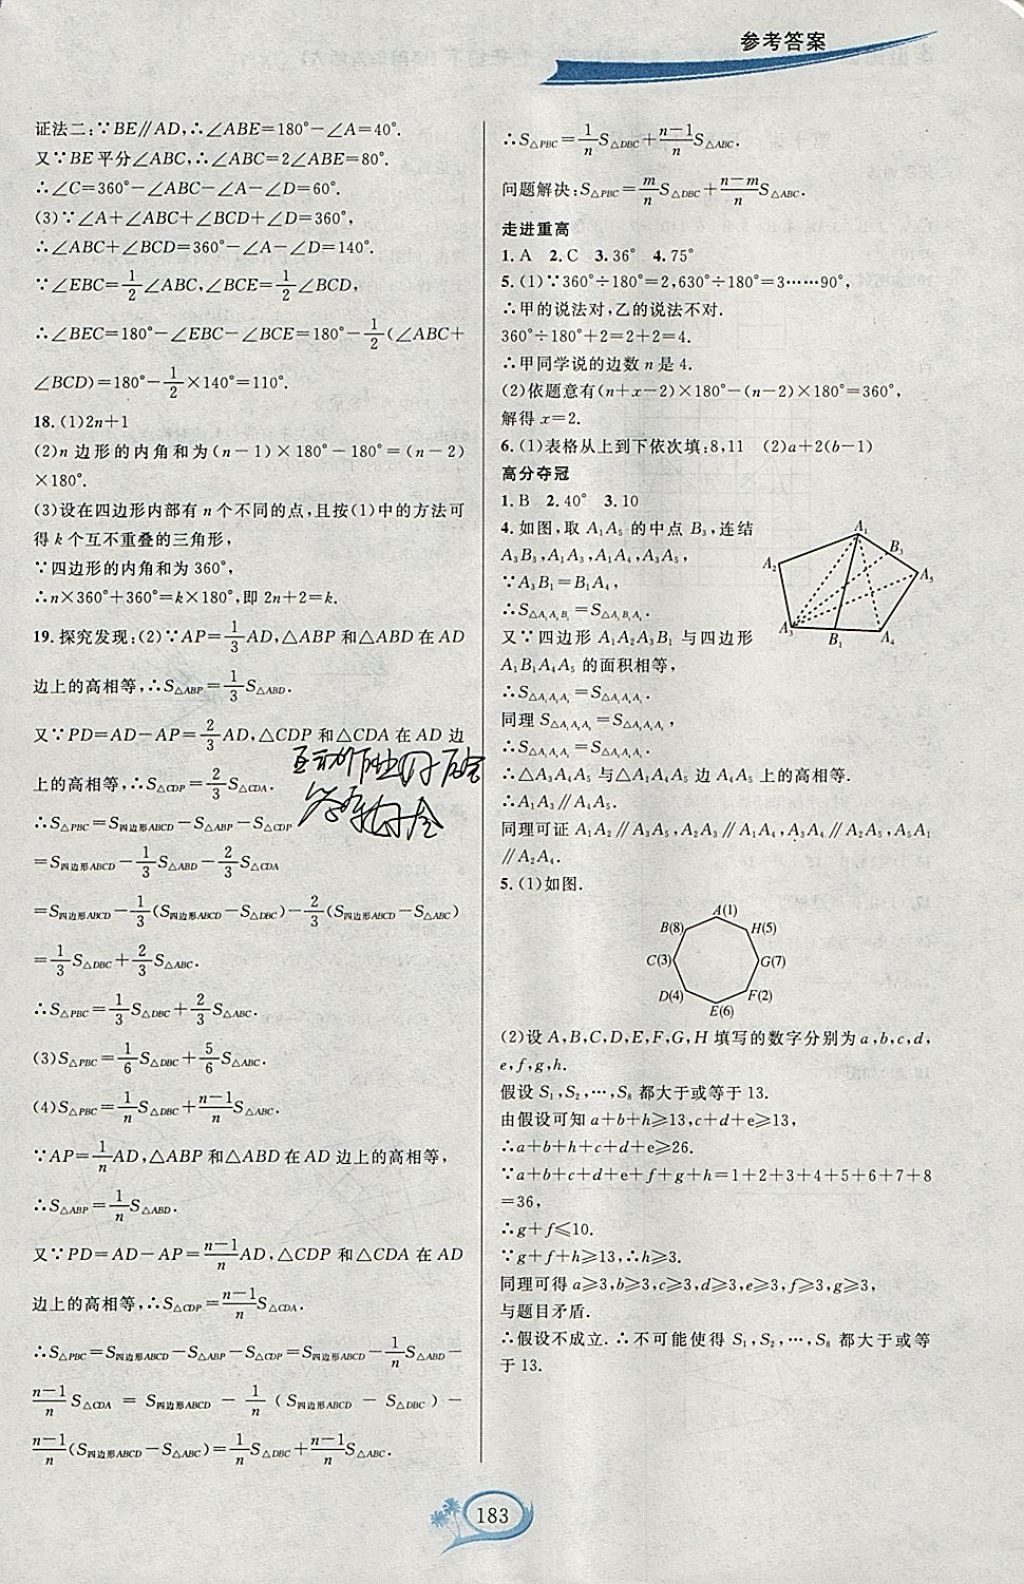 参考答案
证法二:∵BE∥AD,∴∠ABE=180°-∠A=40°.
又∵BE平分∠ABC,∴∠ABC=2∠ABE=80°.
∴∠C=360°-∠ABC-∠A-∠D=60°.
(3)∵∠A+∠ABC+∠BCD+∠D=360°,
∴∠ABC+∠BCD=360°-∠A-∠D=140°.
∵∠EBC=1/2∠ABC,∠BCE=1/2∠BCD,
∴∠BEC=180°-∠EBC-∠BCE=180°-1/2(∠ABC+
∠BCD)=180°-1/2×140°=110°.
18.(1)2n+1
(2)n边形的内角和为(n-1)×180°-180°=(n-2)
×180°.
(3)设在四边形内部有n个不同的点,且按(1)中的方法可
得k个互不重叠的三角形,
∵四边形的内角和为360°,
∴n×360°+360°=k×180°,即2n+2=k.
19.探究发现:(2)∵AP=1/3AD,△ABP和△ABD在AD
边上的高相等,∴S△ABP=1/3S△ABD.
又∵PD=AD-AP=2/3AD,△CDP和△CDA在AD边
上的高相等,∴S△CDP=2/3S△CDA.
∴S△PBC=S四边形ABCD-S△ABP-S△CDP
=S四边形ABCD-1/3S△ABD-2/3S△CDA
=S四边形ABCD-1/3(S四边形ABCD-S△DBC)-2/3(S四边形ABCD-S△ABC)
=1/3S△DBC+2/3S△ABC.
∴S△PBC=1/3S△DBC+2/3S△ABC.
(3)S△PBC=1/6S△DBC+5/6S△ABC.
(4)S△PBC=1/nS△DBC+n-1/nS△ABC.
∵AP=1/nAD,△ABP和△ABD在AD边上的高相等,
∴S△ABP=1/nS△ABD.
又∵PD=AD-AP=n-1/nAD,△CDP和△CDA在AD
边上的高相等,∴S△CDP=n-1/nS△CDA.
∴S△PBC=S四边形ABCD-S△ABP-S△CDP=S四边形ABCD-1/nS△ABD-
n-1/nS△CDA=S四边形ABCD-1/n(S四边形ABCD-S△DBC)-
n-1/n(S四边形ABCD-S△ABC)=1/nS△DBC+n-1/nS△ABC.
∴S△PBC=1/nS△DBC+n-1/nS△ABC.
问题解决:S△PBC=m/nS△DBC+n-m/nS△ABC.
走进重高
1.A 2.C 3.36° 4.75°
5.(1)∵360°÷180°=2,630°÷180°=3……90°,
∴甲的说法对,乙的说法不对.
360°÷180°+2=2+2=4.
∴甲同学说的边数n是4.
(2)依题意有(n+x-2)×180°-(n-2)×180°=360°,
解得x=2.
6.(1)表格从上到下依次填:8,11 (2)a+2(b-1)
高分夺冠
1.B 2.40° 3.10
4.如图,取A₁A₅的中点B₃,连结
A₃B₃,A₁A₃,A₁A₄,A₃A₅,
∵A₃B₁=B₁A₄,
∴S△A₁A₃B₁=S△A₁B₁A₄.
又∵四边形A₁A₂A₃B₁与四边形
A₁B₁A₄A₅的面积相等,
∴S△A₁A₂A₃=S△A₁A₄A₅.
同理S△A₁A₂A₃=S△A₃A₄A₅,
∴S△A₁A₄A₅=S△A₃A₄A₅.
∴△A₃A₄A₅与△A₁A₄A₅边A₄A₅上的高相等.
∴A₁A₃∥A₄A₅.
同理可证A₁A₂∥A₃A₅,A₂A₃∥A₁A₄,A₃A₄∥A₂A₅,A₅A₁
∥A₂A₄.
A₁
B₃
A₂
A₅
A₃
B₁
A₄
5.(1)如图.
A(1)
B(8)
H(5)
C(3)
G(7)
D(4)
F(2)
E(6)
(2)设A,B,C,D,E,F,G,H填写的数字分别为a,b,c,d,
e,f,g,h.
假设S₁,S₂,…,S₈都大于或等于13.
由假设可知a+b+h≥13,c+d+e≥13,
∴a+b+h+c+d+e≥26.
∵a+b+c+d+e+f+g+h=1+2+3+4+5+6+7+8
=36,
∴g+f≤10.
∵g+f+h≥13,∴h≥3.
同理可得a≥3,b≥3,c≥3,d≥3,e≥3,f≥3,g≥3,
与题目矛盾.
∴假设不成立.∴不可能使得S₁,S₂,…,S₈都大于或等
于13.
183